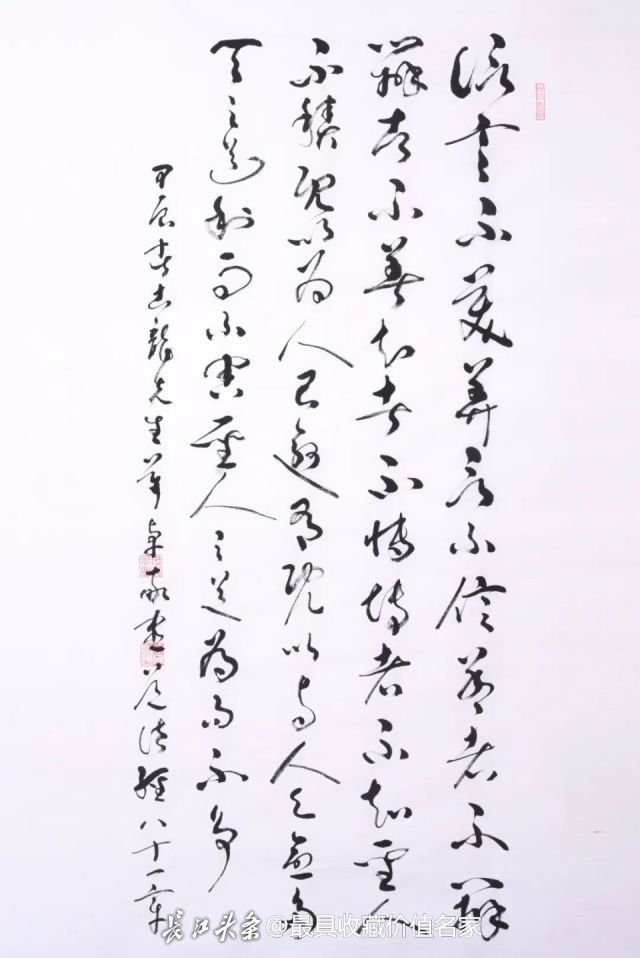 信言不美美言不信善者不辯
辯者不善知者不博博者不知聖人
不積既以為人己愈有既以與人己愈多
天之道利而不害聖人之道為而不爭
甲辰春 龍先生 道德經八十一章
长江头条 @最具收藏价值名家